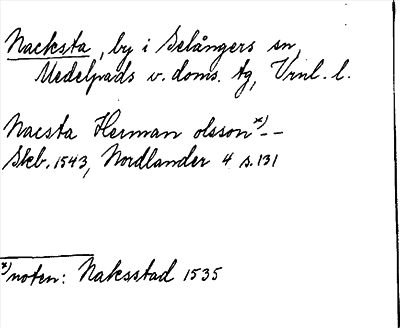 Nacksta, by i Selångers sn,
Medelpads v. doms. tg, Vrnl. l.
Nacsta Herman olsson x) --
Skb. 1543, Nordlander 4 s. 131
x) noten: Naksstad 1535